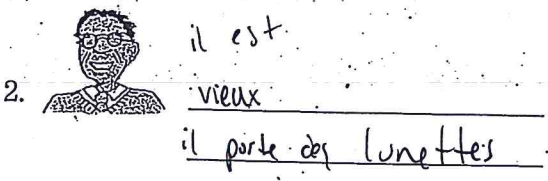 il est
2. vieux
il porte des lunettes